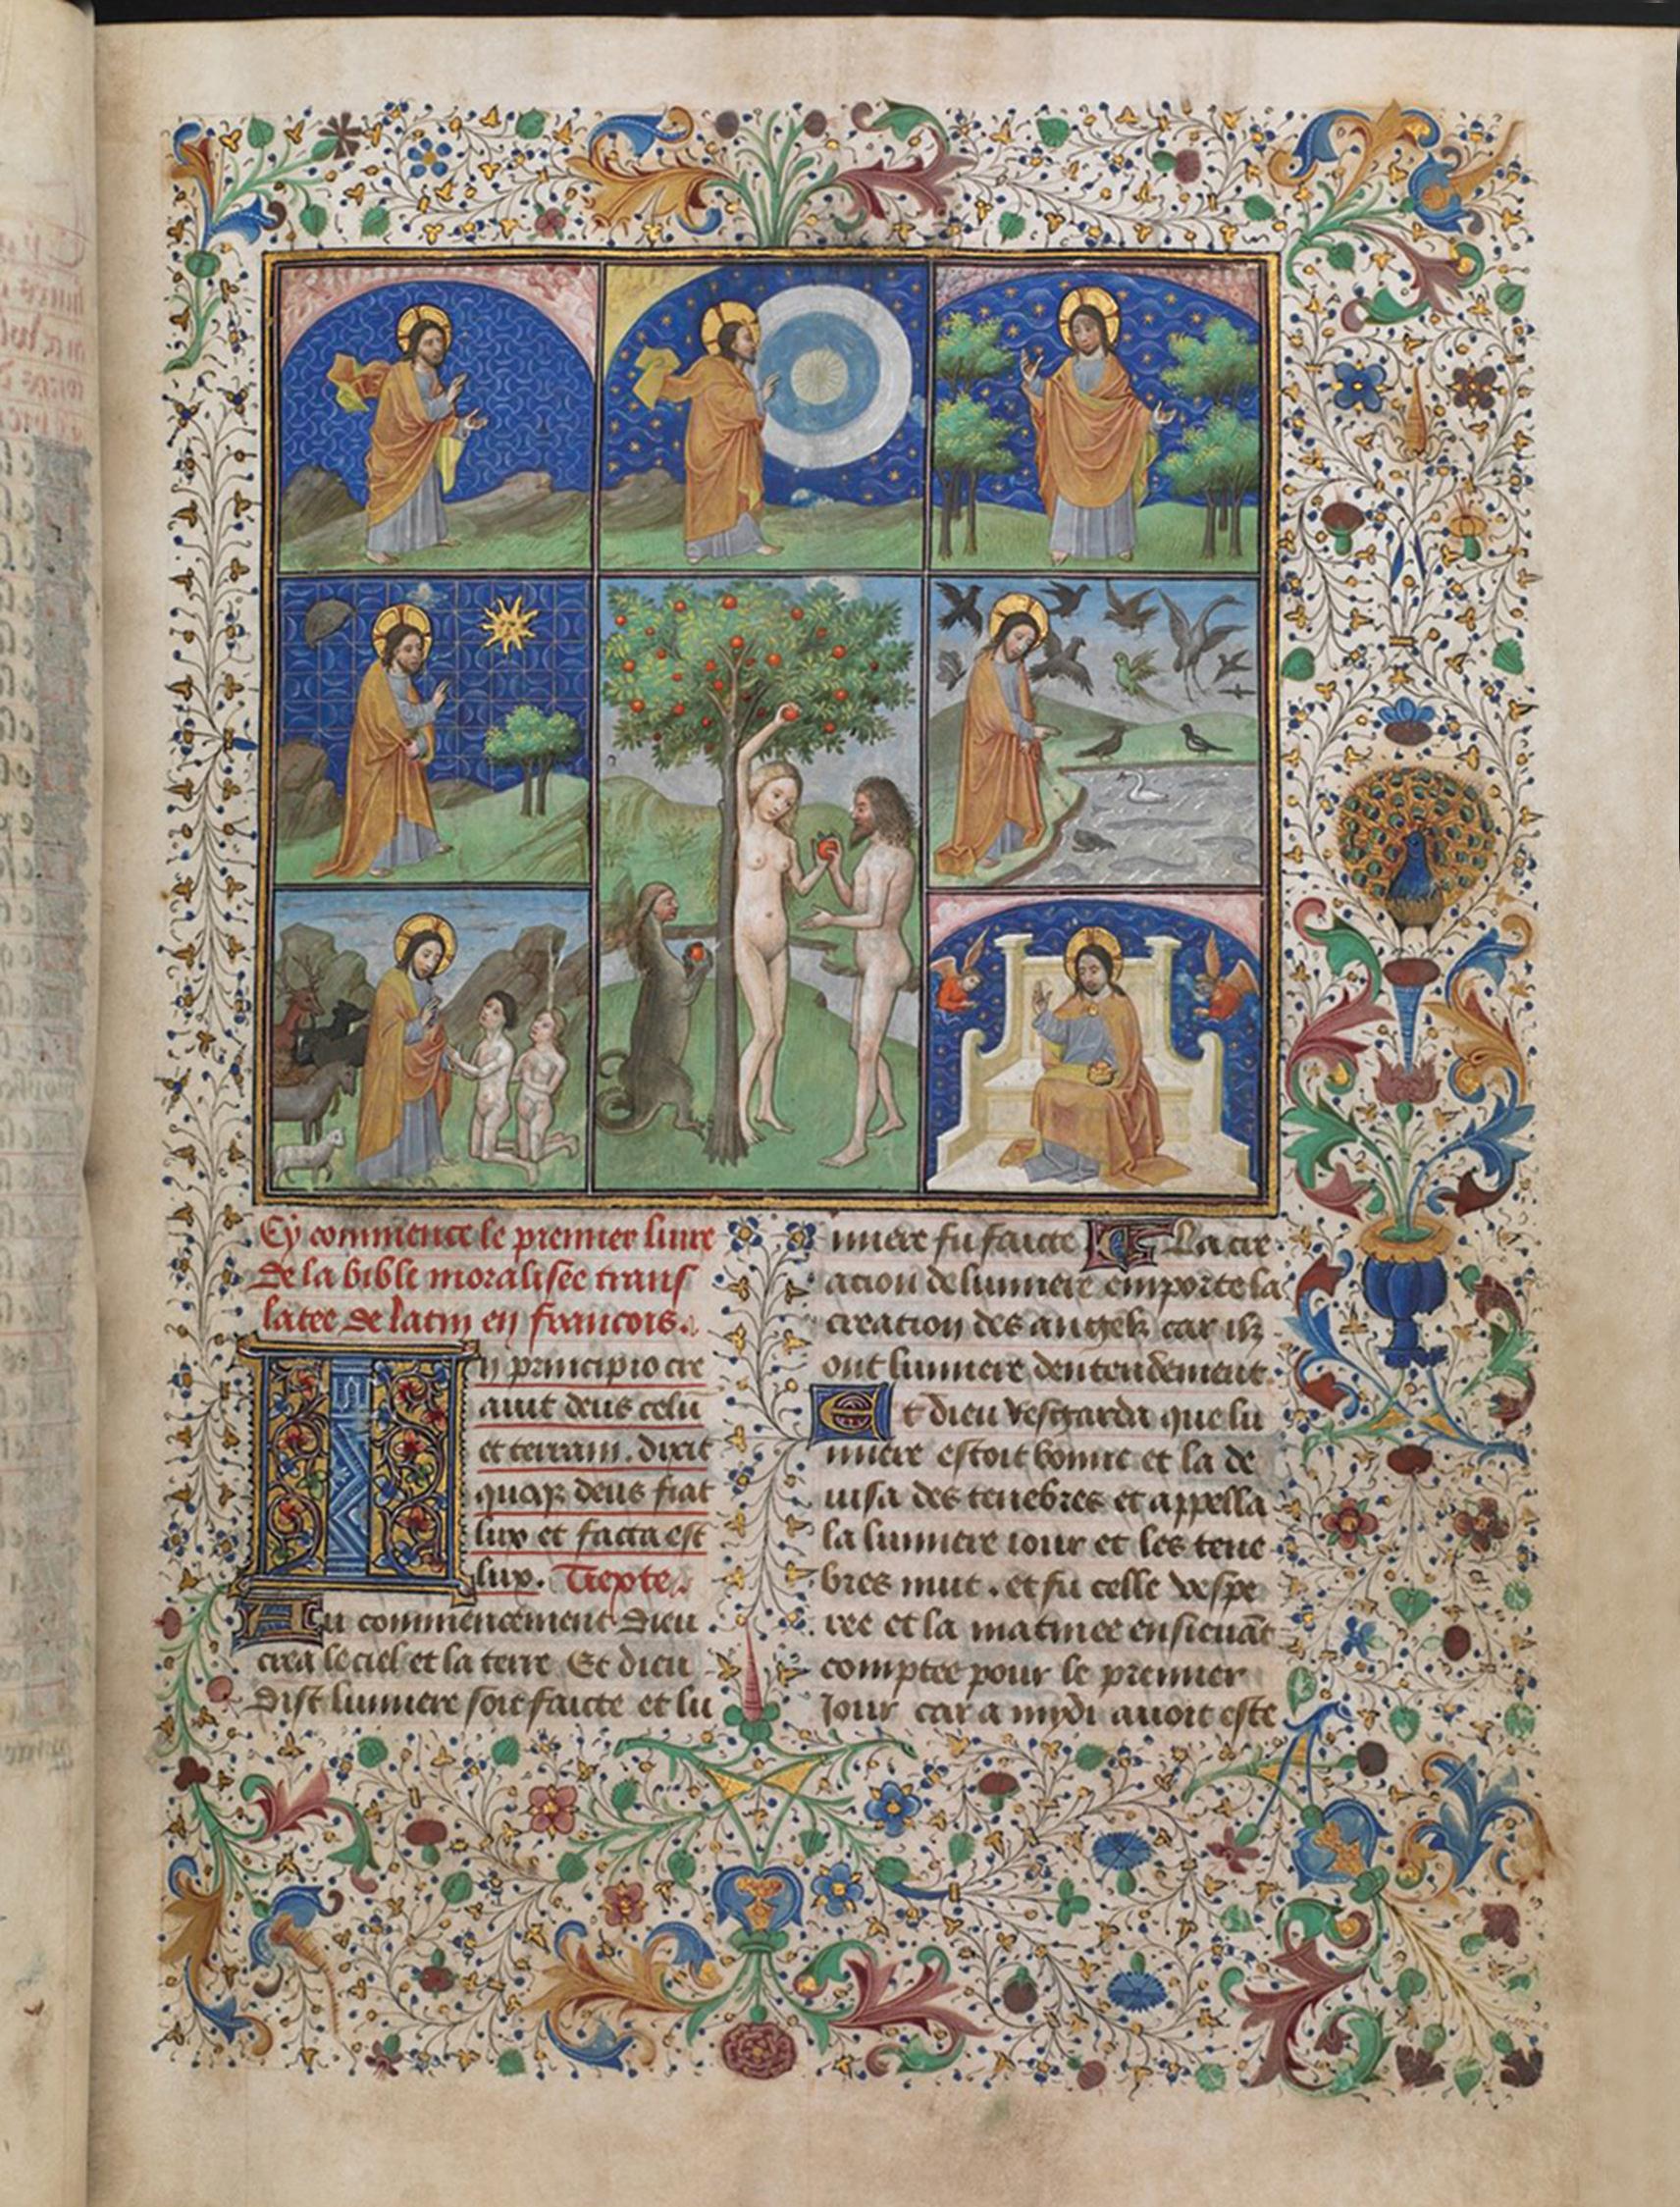 Cy commence le premier liure
de la bible moralisee trans
latee de latin en francois.
In principio cre
auit deus celū
et terram. dixit
quoqꝫ deus fiat
lux et facta est
lux. Texte.
Au commencement dieu
crea le ciel et la terre Et dieu
dist lumiere soit faicte et lu
miere fu faicte La cre
acion de lumiere emporte la
creation des angelz car ilz
ont lumiere dentendement.
Et dieu resgarda que lu
miere estoit bonne et la de
uisa des tenebres et appella
la lumiere iour et les tene
bres nuit . et fu celle vespe
ree et la matinee ensieuāt
comptee pour le premier
Jour car a mydi auoit este